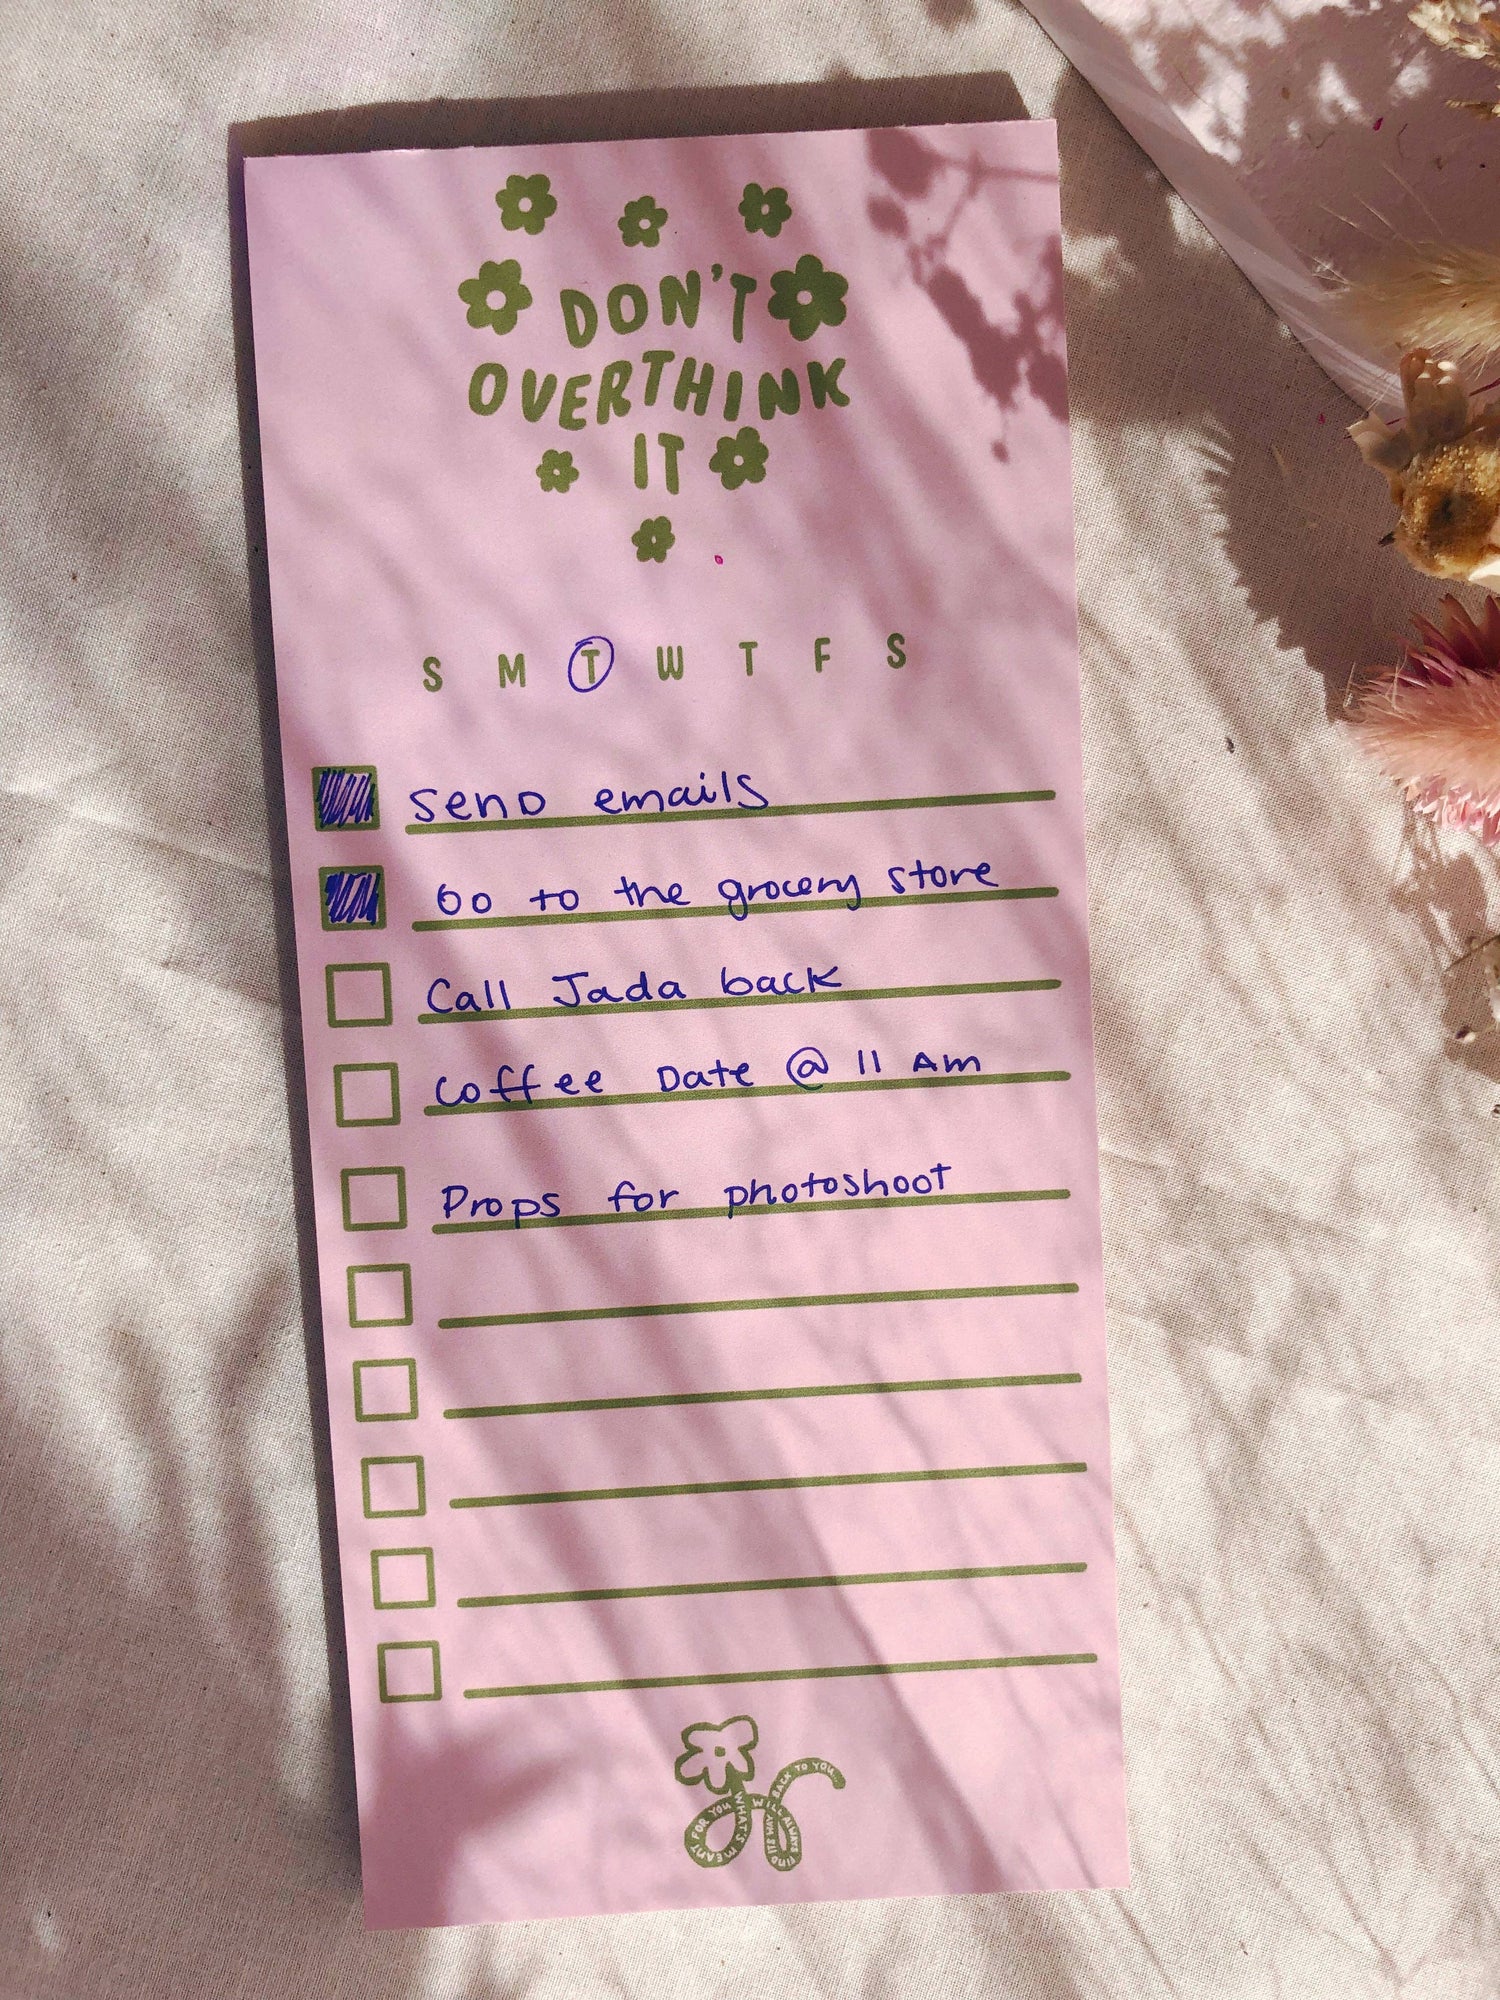 DON'T
OVERTHINK
IT
S M T W T F S
Send emails
Go to the grocery store
Call Jada back
Coffee Date @ 11 AM
Props for photoshoot
WHAT'S MEANT FOR YOU WILL ALWAYS FIND ITS WAY BACK TO YOU